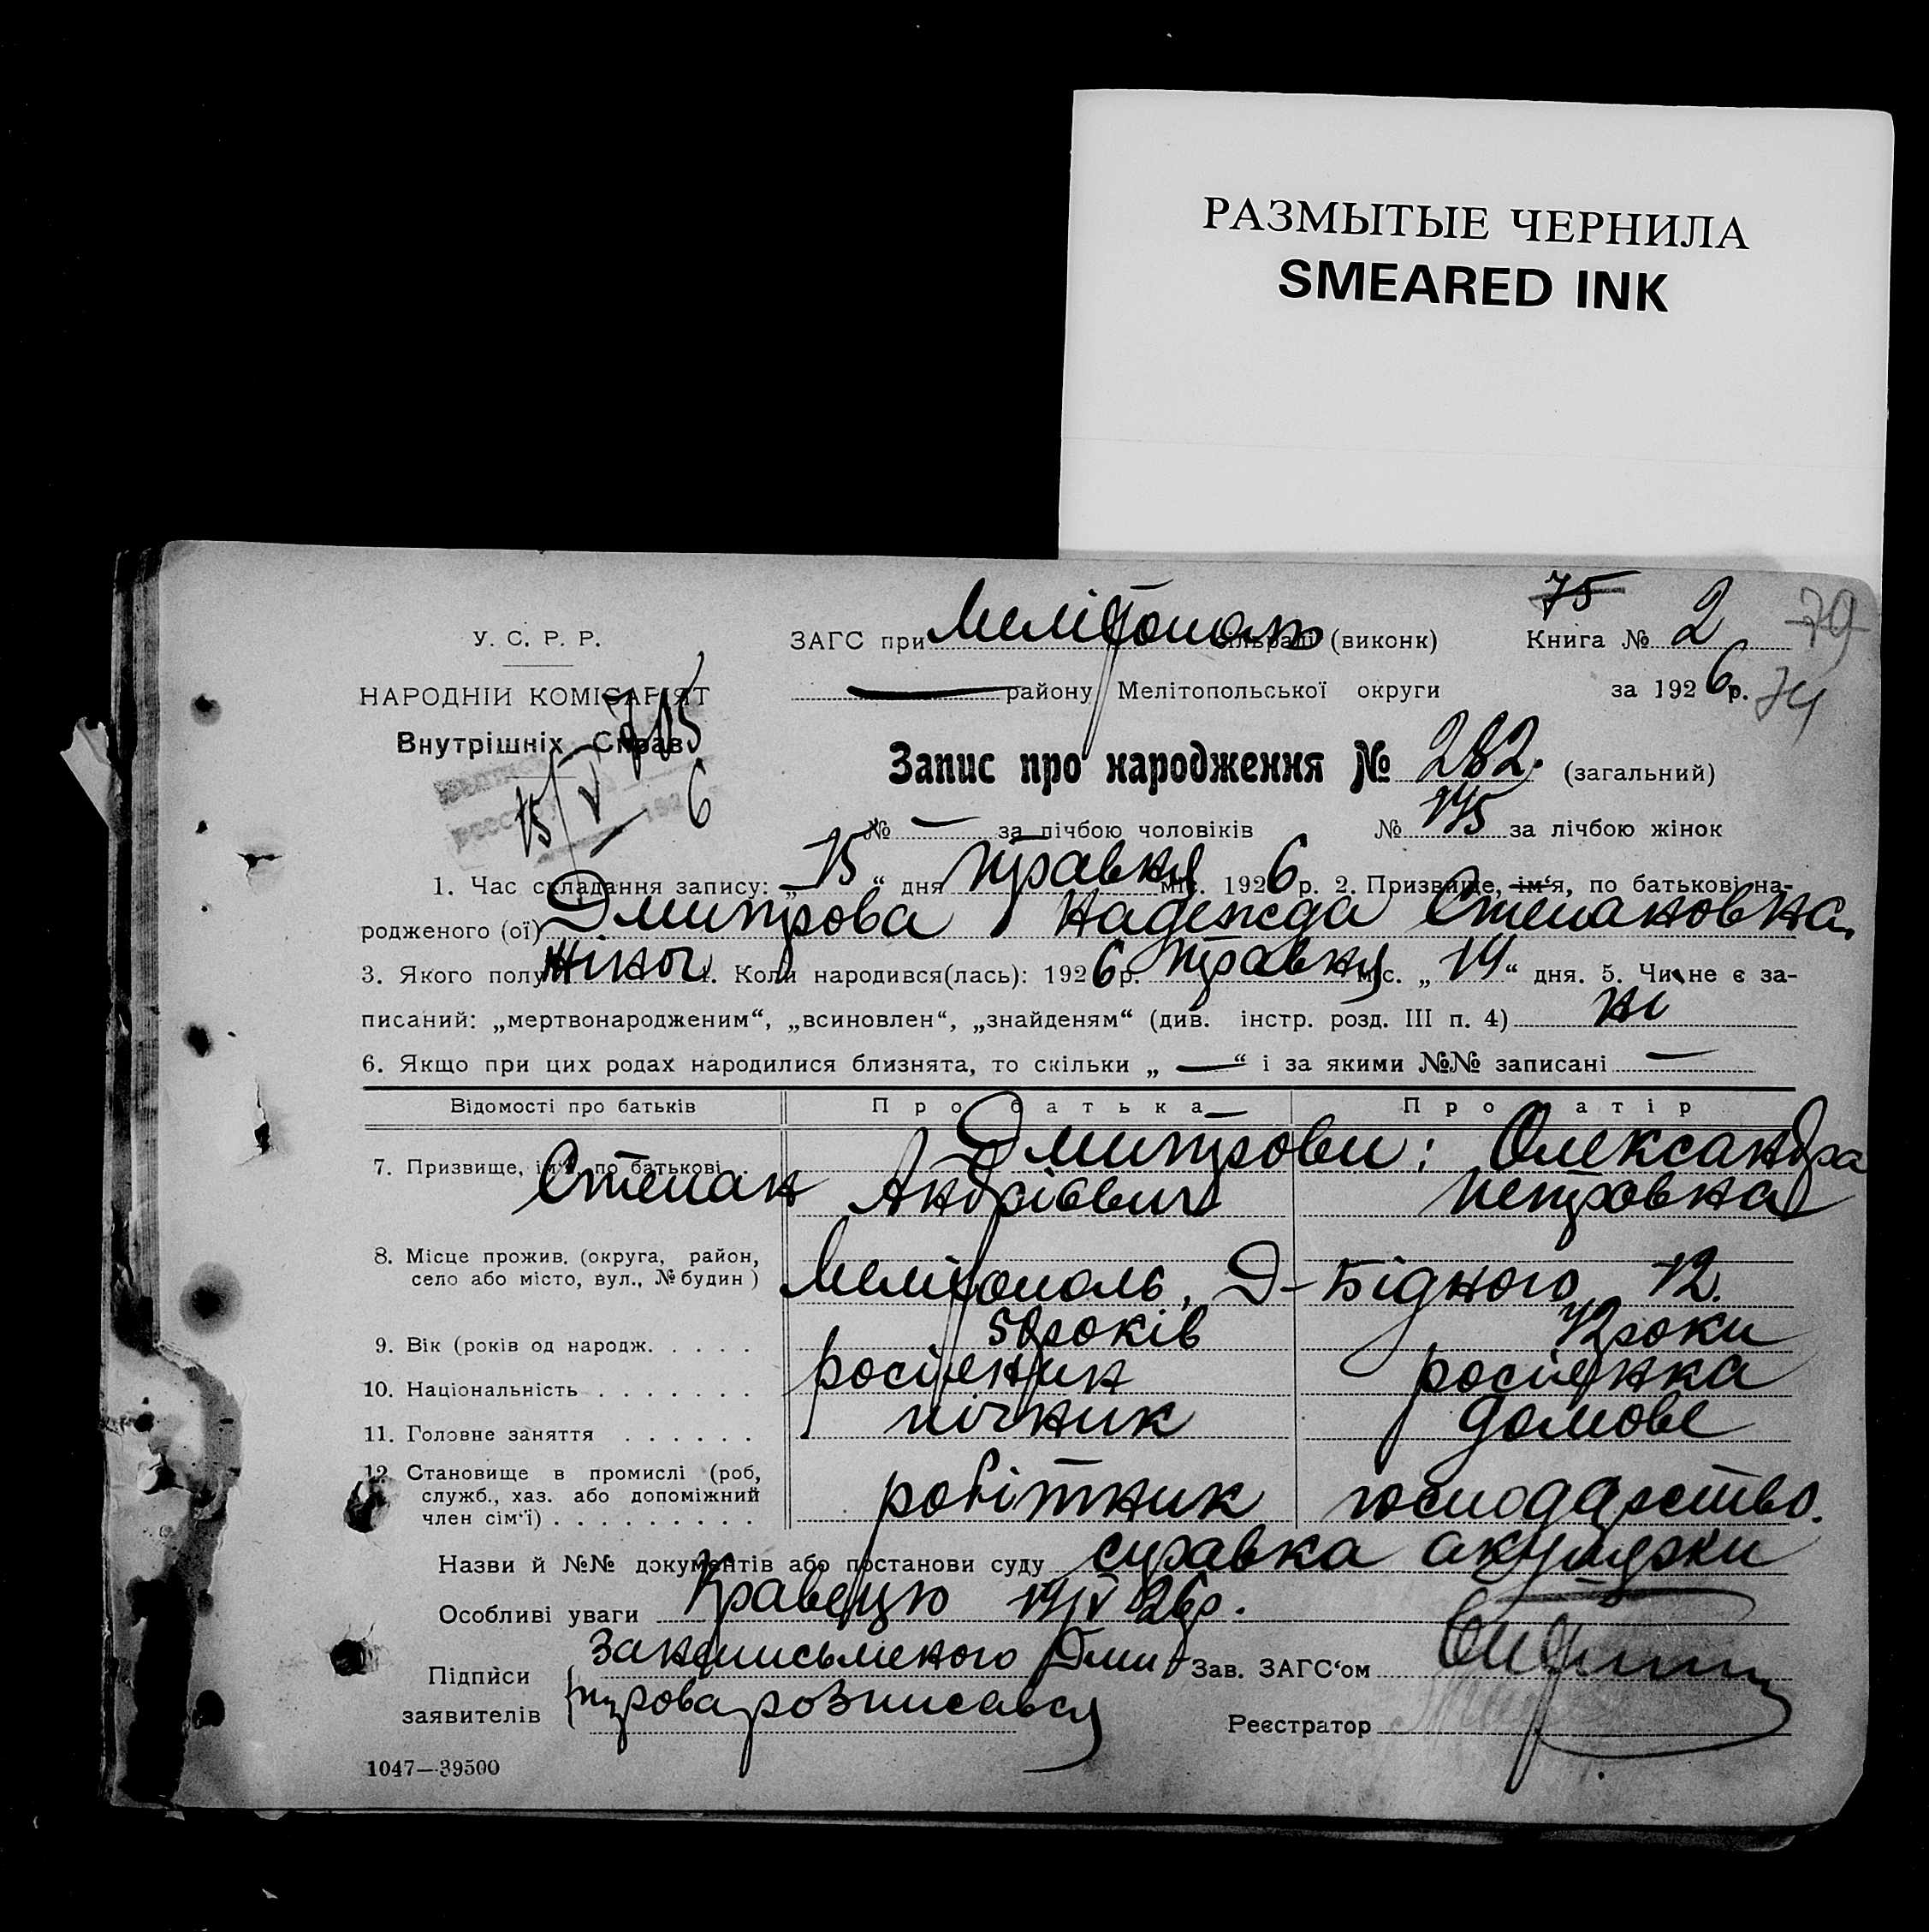 РАЗМЫТЫЕ ЧЕРНИЛА
SMEARED INK
75
У. С. Р. Р.
ЗАГС при Мелітополь сільраді (виконк)
Книга № 2
79
НАРОДНІЙ КОМІСАРІЯТ
району Мелітопольської округи
за 1926 р.
74
Внутрішніх Справ
705
Запис про народження № 282. (загальний)
15/V 6
№ — за лічбою чоловіків № 145 за лічбою жінок
1. Час складання запису: „15“ дня травня міс. 1926 р. 2. Призвище, ім‘я, по батькові на-
родженого (ої) Дмитрова Надежда Степановна.
3. Якого полу жіноч. 4. Коли народився(лась): 1926 р. травня міс. „14“ дня. 5. Чи не є за-
писаний: „мертвонародженим“, „всиновлен“, „знайденям“ (див. інстр. розд. III п. 4) ні
6. Якщо при цих родах народилися близнята, то скільки „—“ і за якими №№ записані —
Відомості про батьків Про батька Про матір
7. Призвище, ім‘я, по батькові Дмитрови: Олександра
Степан Андрієвич Петровна
8. Місце прожив. (округа, район,
село або місто, вул., № будин) Мелітополь, Д-Бідного 12.
9. Вік (років од народж. 50 років 42 роки
10. Національність росіянин росіянка
11. Головне заняття пічник домове
12. Становище в промислі (роб,
служб., хаз. або допоміжний робітник господарство.
член сім‘ї)
Назви й №№ документів або постанови суду справка акушерки
Особливі уваги Кравецю 14/V 26 р.
Підписи За неписьменого Дми
Зав. ЗАГС‘ом
заявителів трова розписався
Реєстратор
1047—39500